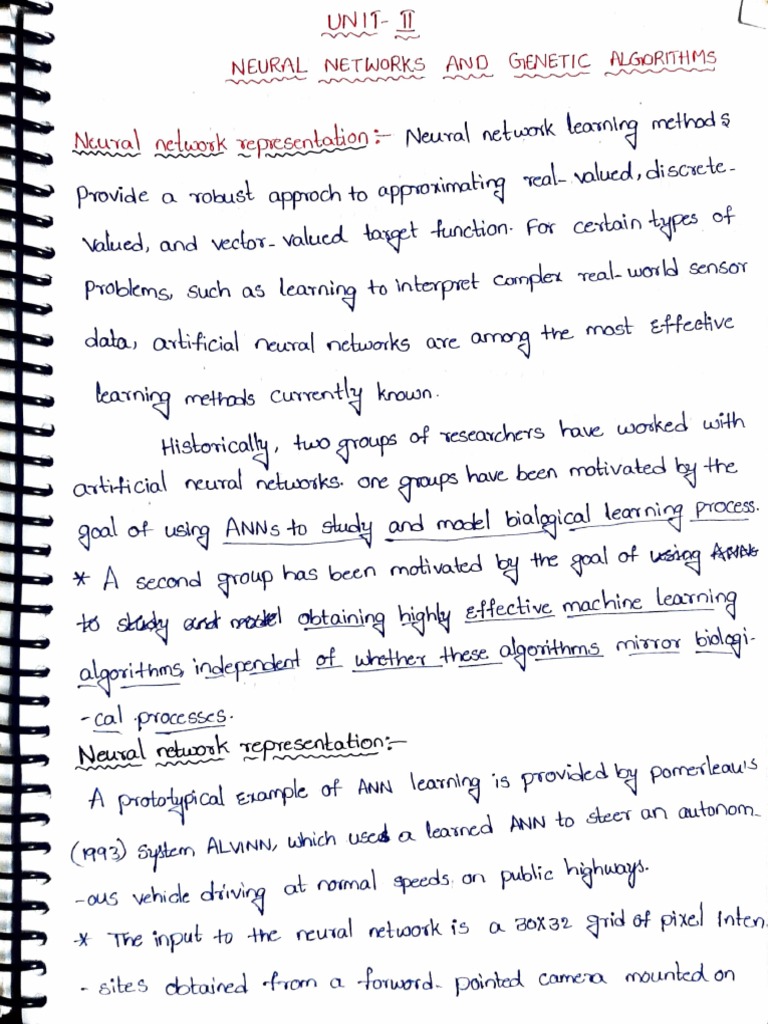 UNIT- II
NEURAL NETWORKS AND GENETIC ALGORITHMS
Neural network representation:- Neural network learning methods
Provide a robust approch to approximating real-valued, discrete-
Valued, and vector-valued target function. For certain types of
Problems, such as learning to interpret complex real-world sensor
data, artificial neural networks are among the most effective
learning methods currently known.
Historically, two groups of researchers have worked with
artificial neural networks. one groups have been motivated by the
goal of using ANNs to study and model bialogical learning process.
* A second group has been motivated by the goal of using ANNs
to study and model obtaining highly effective machine learning
algorithms, independent of whether these algorithms mirror biologi-
-cal processes.
Neural network representation:-
A prototypical example of ANN learning is provided by pomerleau's
(1993) System ALVINN, which uses a learned ANN to steer an autonom-
-ous vehicle driving at normal speeds on public highways.
* The input to the neural network is a 30X32 grid of pixel Inten
- sites obtained from a forword- pointed camera mounted on